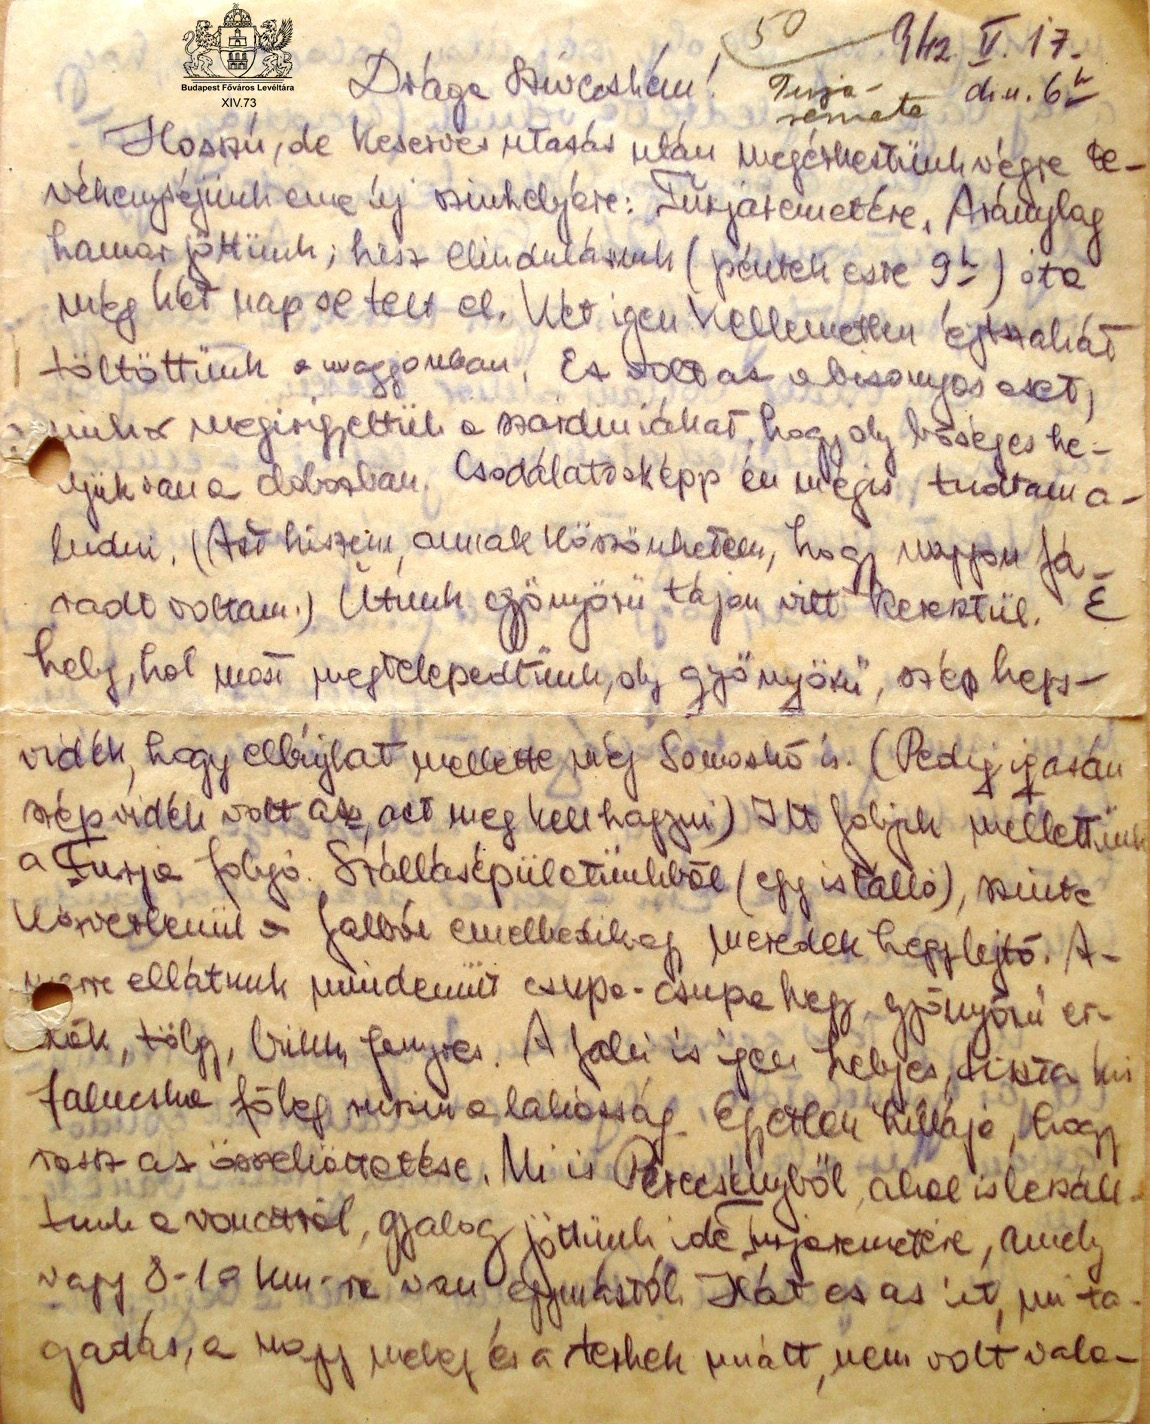 Budapest Főváros Levéltára
XIV.73
50
942 V. 17.
Drága Szívecském!
Turja-
remete
du. 6h
Hosszú, de keserves utazás után megérkeztünk végre te-
vékenységünk eme új szinhelyére: Turjaremetére. Aránylag
hamar jöttünk, hisz elindulásunk (péntek este 9h) óta
még két nap se telt el. Két igen kellemetlen éjtszakát
töltöttünk a waggonban. Ez volt az a bizonyos eset,
mikor megirigyeltük a szárdiniákat, hogy oly bőséges he-
lyük van a dobozban. Csodálatosképp én mégis tudtam a-
ludni. (Azt hiszem, annak köszönhetem, hogy nagyon fá-
radt voltam.) Utunk gyönyörű tájon vitt keresztül. E
hely, hol most megtelepedtünk, oly gyönyörű, szép hegy-
vidék, hogy elbújhat mellette még Somoskő is. (Pedig igazán
szép vidék volt az, azt meg kell hagyni) Itt folyik mellettünk
a Turja folyó. Szállásépületünkből (egy istálló), szinte
közvetlenül a faltól emelkedik egy meredek hegylejtő. A-
merre ellátunk mindenütt csupa-csupa hegy, gyönyörű er-
dők, tölgy, bükk, fenyves. A falu is igen helyes, tiszta kis
falucska főleg ruszin a lakosság. Egyetlen hibája, hogy
rossz az összeköttetése. Mi is Perecsenyből, ahol is leszáll-
tunk a vonatról, gyalog jöttünk ide Turjaremetére, amely
vagy 8-10 km-re van egymástól. Hát ez az út, mi ta-
gadás, a nagy meleg és a terhek miatt, nem volt vala-